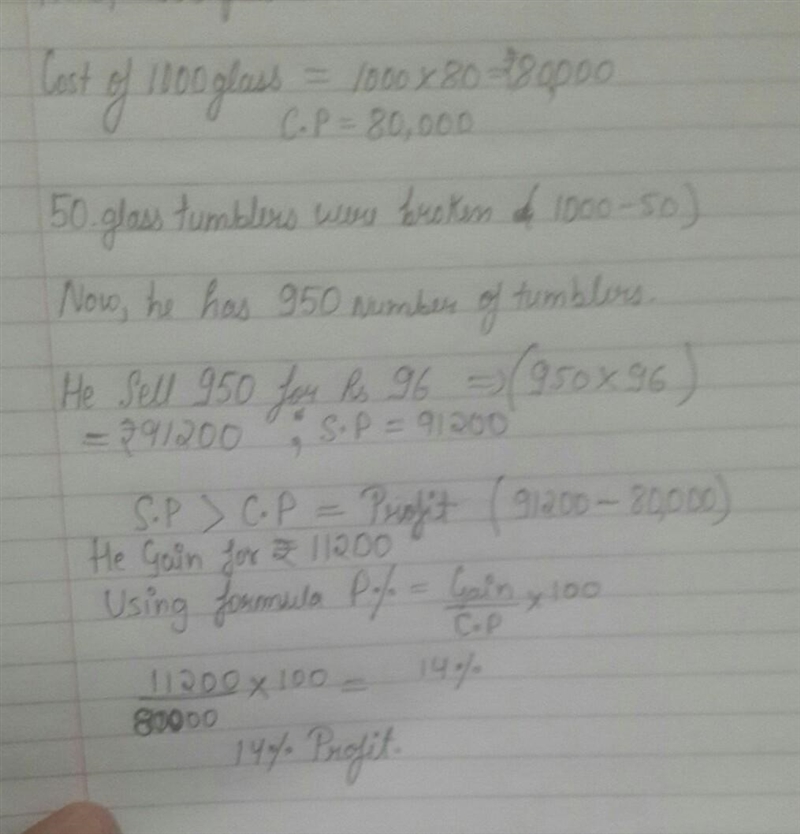 Cost of 1000 glass = 1000 × 80 = ₹80,000
C.P = 80,000
50. glass tumblers were broken ( 1000 - 50 )
Now, he has 950 number of tumblers.
He Sell 950 for Rs 96 => (950 × 96)
= ₹91200 ; S.P = 91200
S.P > C.P = Profit (91200 - 80,000)
He Gain for ₹ 11200
Using formula P% = Gain/C.P × 100
11200/80000 × 100 = 14%
14% Profit.